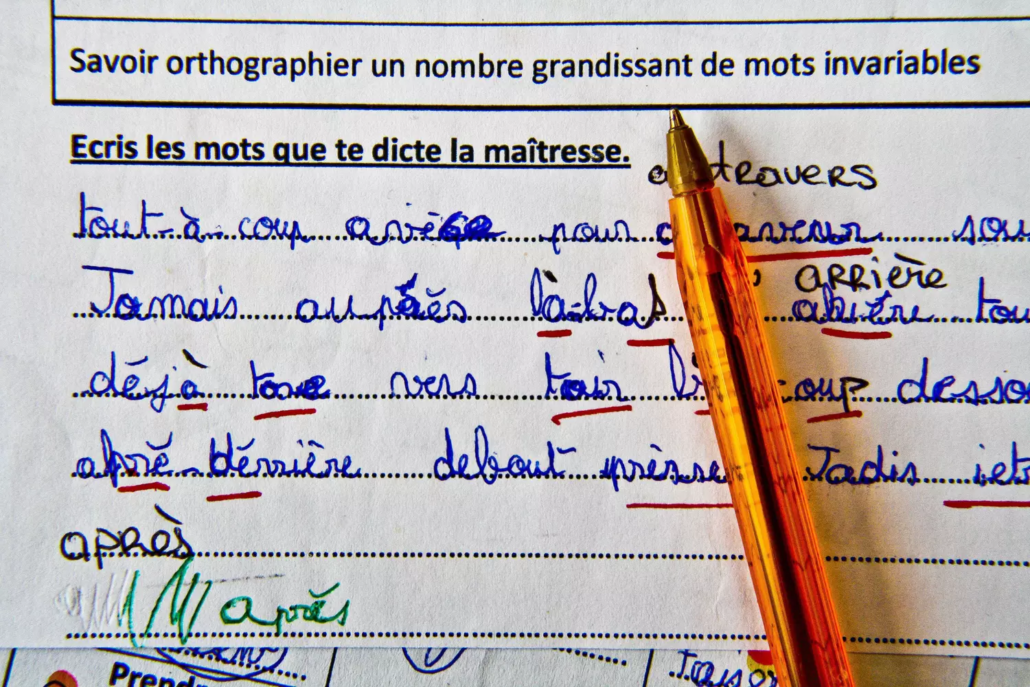 Savoir orthographier un nombre grandissant de mots invariables
Ecris les mots que te dicte la maîtresse.
travers
tout-à-coup pour sou
ARRIÈRE
Jamais auprès là-bas tou
déjà vers tair coup desso
apré-dérrière debout prèsse Jadis iet
après
après
Prend